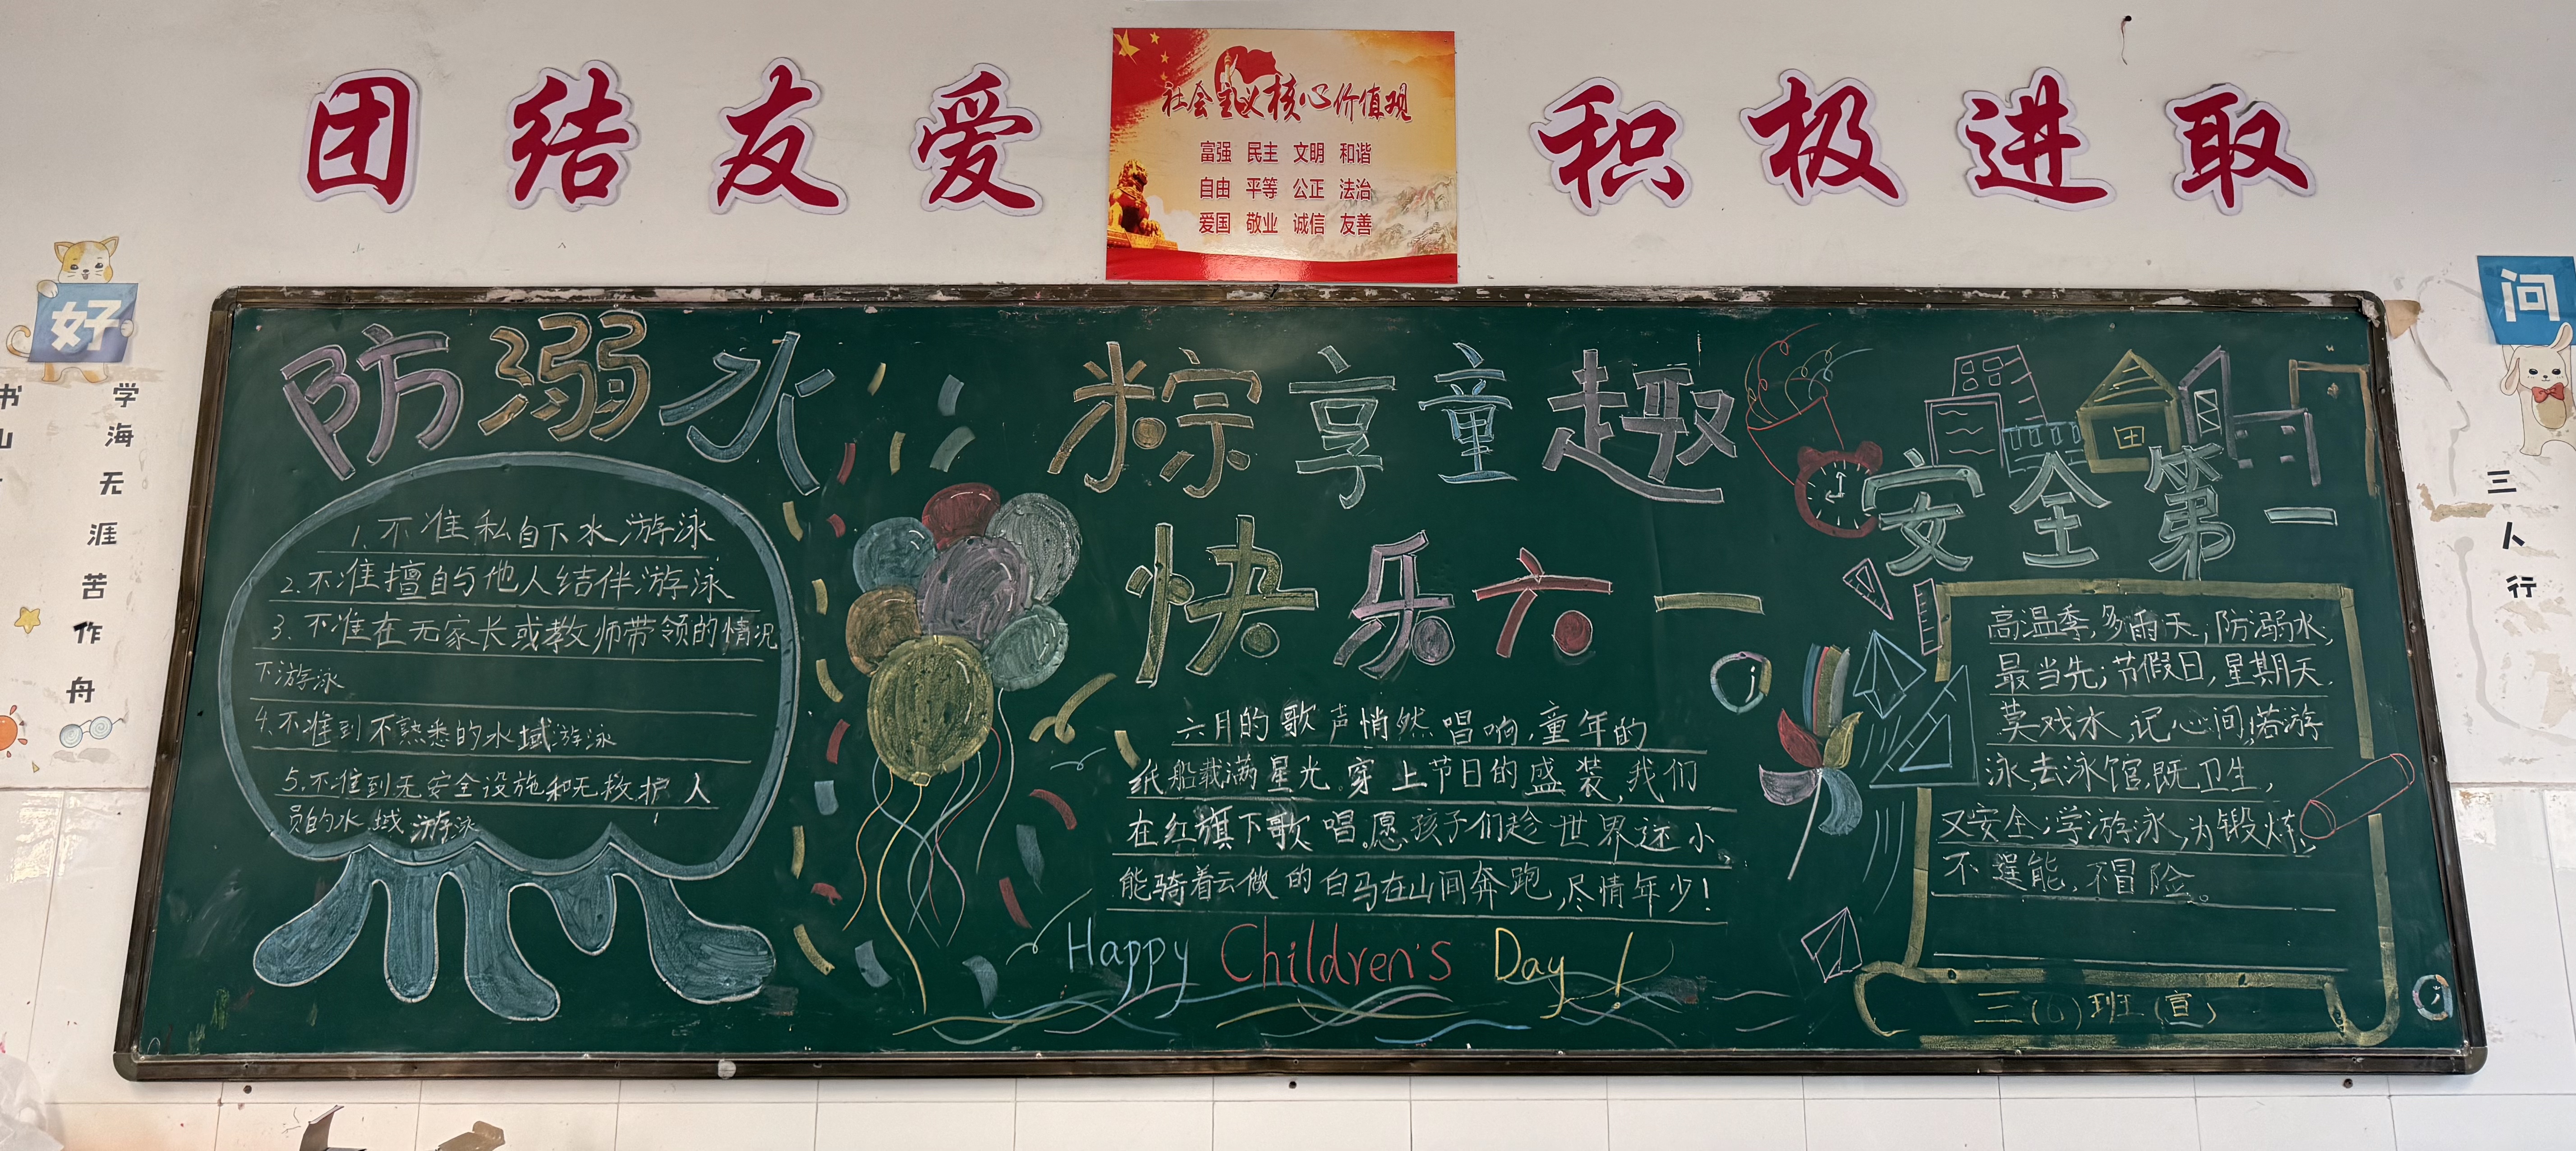 团结友爱
社会主义核心价值观
富强 民主 文明 和谐
自由 平等 公正 法治
爱国 敬业 诚信 友善
积极进取
好
学海无涯苦作舟
书山
问
三人行
防溺水
1.不准私自下水游泳
2.不准擅自与他人结伴游泳
3.不准在无家长或教师带领的情况
下游泳
4.不准到不熟悉的水域游泳
5.不准到无安全设施和无救护人
员的水域游泳
粽享童趣
快乐六一
六月的歌声悄然唱响,童年的
纸船载满星光.穿上节日的盛装,我们
在红旗下歌唱。愿孩子们趁世界还小,
能骑着云做的白马在山间奔跑,尽情年少!
Happy Children's Day!
安全第一
高温季,多雨天,防溺水,
最当先;节假日,星期天,
莫戏水,记心间;若游
泳,去泳馆,既卫生,
又安全;学游泳,为锻炼,
不逞能,不冒险。
三(6)班(宣)